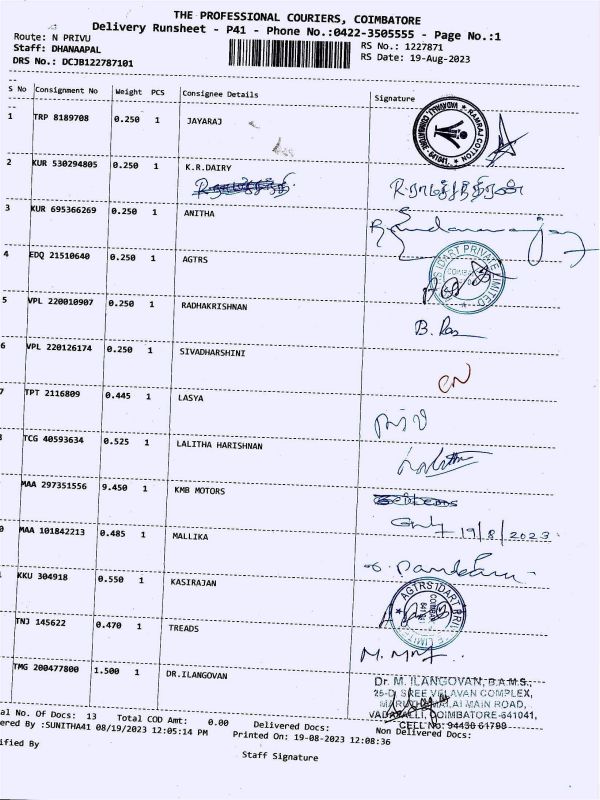 THE PROFESSIONAL COURIERS, COIMBATORE
Delivery Runsheet - P41 - Phone No.:0422-3505555 - Page No.:1
Route: N PRIVU
RS No.: 1227871
Staff: DHANAAPAL
RS Date: 19-Aug-2023
DRS No.: DCJB122787101
S No Consignment No Weight PCS Consignee Details Signature
1 TRP 8189708 0.250 1 JAYARAJ
RAMRAJ COTTON
2 KUR 530294805 0.250 1 K.R.DAIRY
3 KUR 695366269 0.250 1 ANITHA
4 EDQ 21510640 0.250 1 AGTRS
5 VPL 220010907 0.250 1 RADHAKRISHNAN
6 VPL 220126174 0.250 1 SIVADHARSHINI
7 TPT 2116809 0.445 1 LASYA
TCG 40593634 0.525 1 LALITHA HARISHNAN
Lalitha
MAA 297351556 9.450 1 KMB MOTORS
19/8/2023
MAA 101842213 0.485 1 MALLIKA
KKU 304918 0.550 1 KASIRAJAN
TNJ 145622 0.470 1 TREADS
TMG 200477800 1.500 1 DR.ILANGOVAN
Dr. M. ILANGOVAN, B.A.M.S.,
25-D, SREE VELAVAN COMPLEX,
MARUTHAMALAI MAIN ROAD,
VADAVALLI, COIMBATORE-641041,
CELL No: 94430 61798
al No. Of Docs: 13 Total COD Amt: 0.00 Delivered Docs: Non Delivered Docs:
ered By :SUNITHA41 08/19/2023 12:05:14 PM Printed On: 19-08-2023 12:08:36
ified By Staff Signature